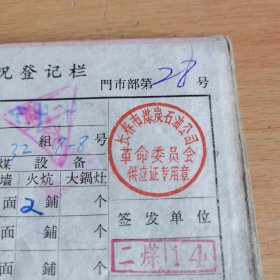 况登记栏
門市部第28号
32組8-8号
煤設备
墙火炕大鍋灶
面2鋪个
面鋪个
面鋪个
长春市煤炭石油公司
革命委员会
供应证专用章
签发单位
二煤14